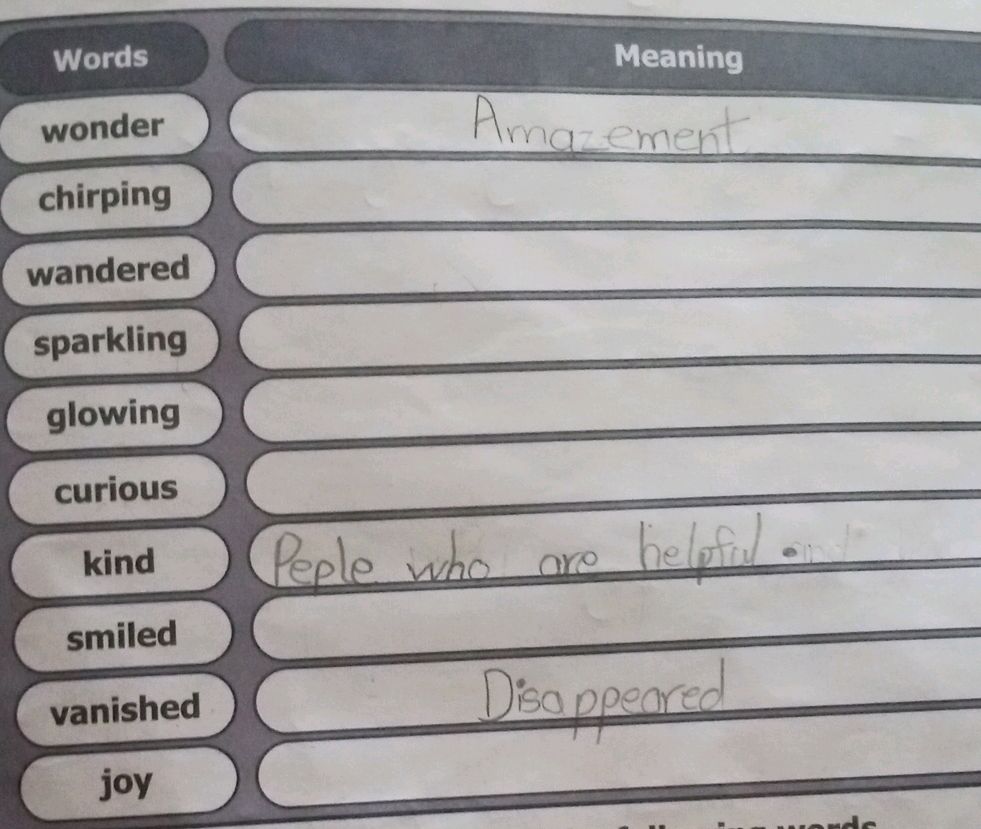 Words Meaning
wonder Amazement
chirping
wandered
sparkling
glowing
curious
kind Peple who are helpful and
smiled
vanished Disappeared
joy
following words